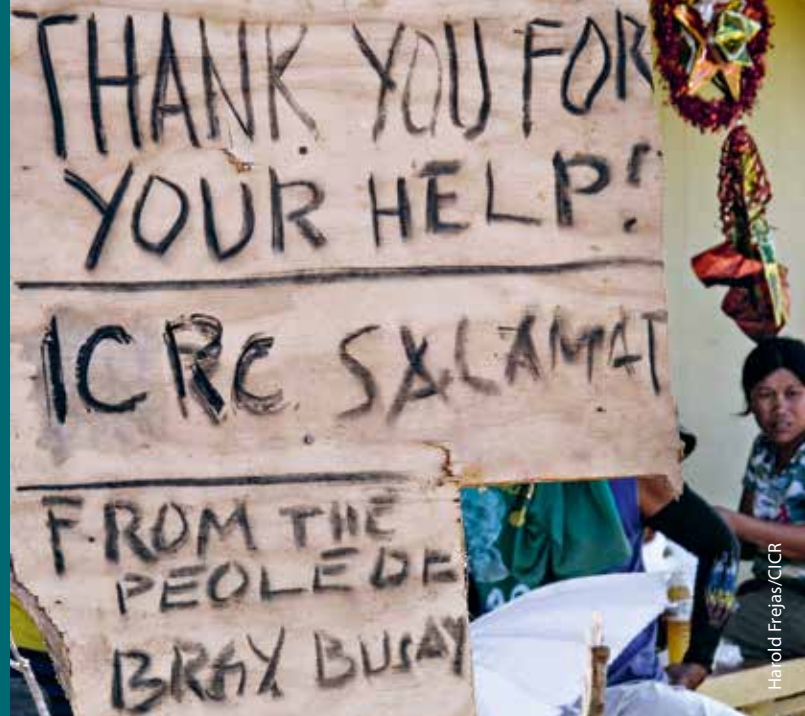 THANK YOU FOR
YOUR HELP!
ICRC SALAMAT
FROM THE
PEOLE OF
BRGY BUSAY
Harold Frejas/CICR